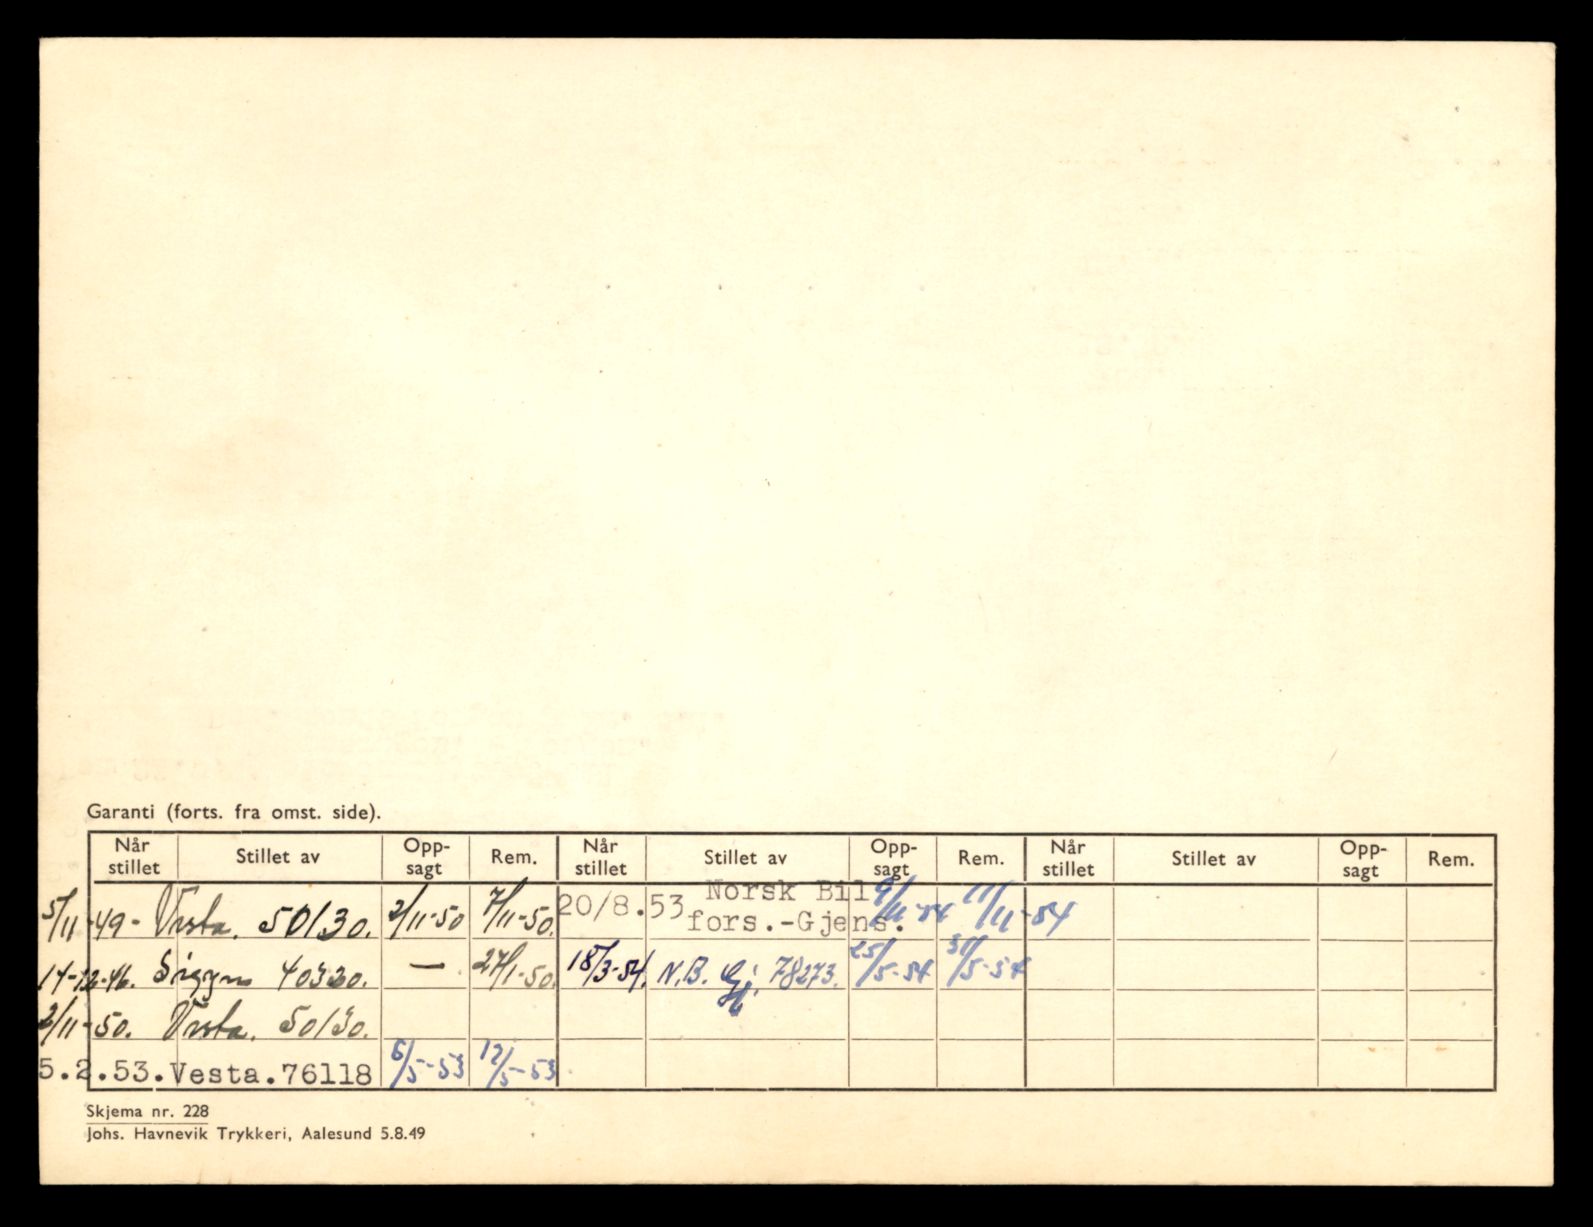 Garanti (forts. fra omst. side).
Når stillet Stillet av Opp-sagt Rem. Når stillet Stillet av Opp-sagt Rem. Når stillet Stillet av Opp-sagt Rem.
5/11-49- Vesta. 50130. 2/11-50 7/11-50. 20/8.53 Norsk Bil fors.-Gjens. 9/11-54 11/11-54
14-12-46. Sigyn 40320. — 27/1-50. 18/3-54. N.B. Gj. 78273. 25/5-54 31/5-54
2/11-50. Vesta. 50130.
5.2.53. Vesta. 76118 6/5-53 12/5-53
Skjema nr. 228
Johs. Havnevik Trykkeri, Aalesund 5.8.49